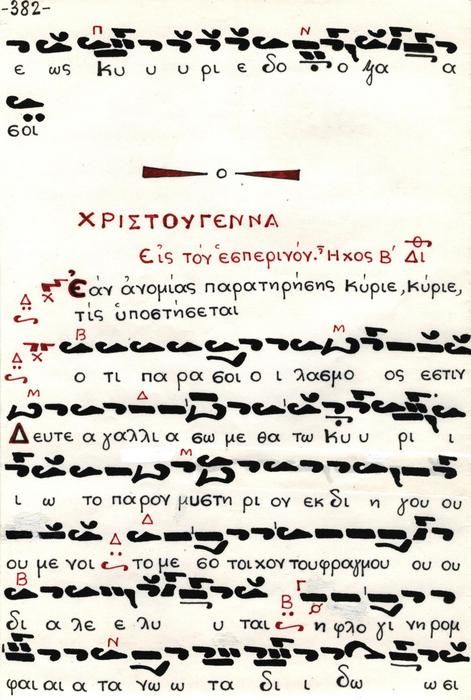 -382-
Π Ν
ε ως Κυ υ υ ρι ε δο ο ξα α
σοι
ο
ΧΡΙΣΤΟΥΓΕΝΝΑ
Εἰς τόν ἑσπερινόν. Ἦχος Β´ Δι
Ἐάν ἀνομίας παρατηρήσης Κύριε, Κύριε,
τίς ὑποστήσεται
Β Μ
ο τι πα ρα σοι ο ι λασμο ος εστιν
Μ Δ
Δευτε α γαλλι α σω με θα τω Κυ υ ρι ι
Μ
ι ω το παρον μυστη ρι ον εκ δι η γου ου
Δ Δ
ου με νοι το με σο τοιχον του φραγμου ου ου
Β Β Γ
δι α λε ε λυ υ ται η φλο γι νη ρομ
Ν
φαι αι α τα νω ω τα δι ι δω ω σι